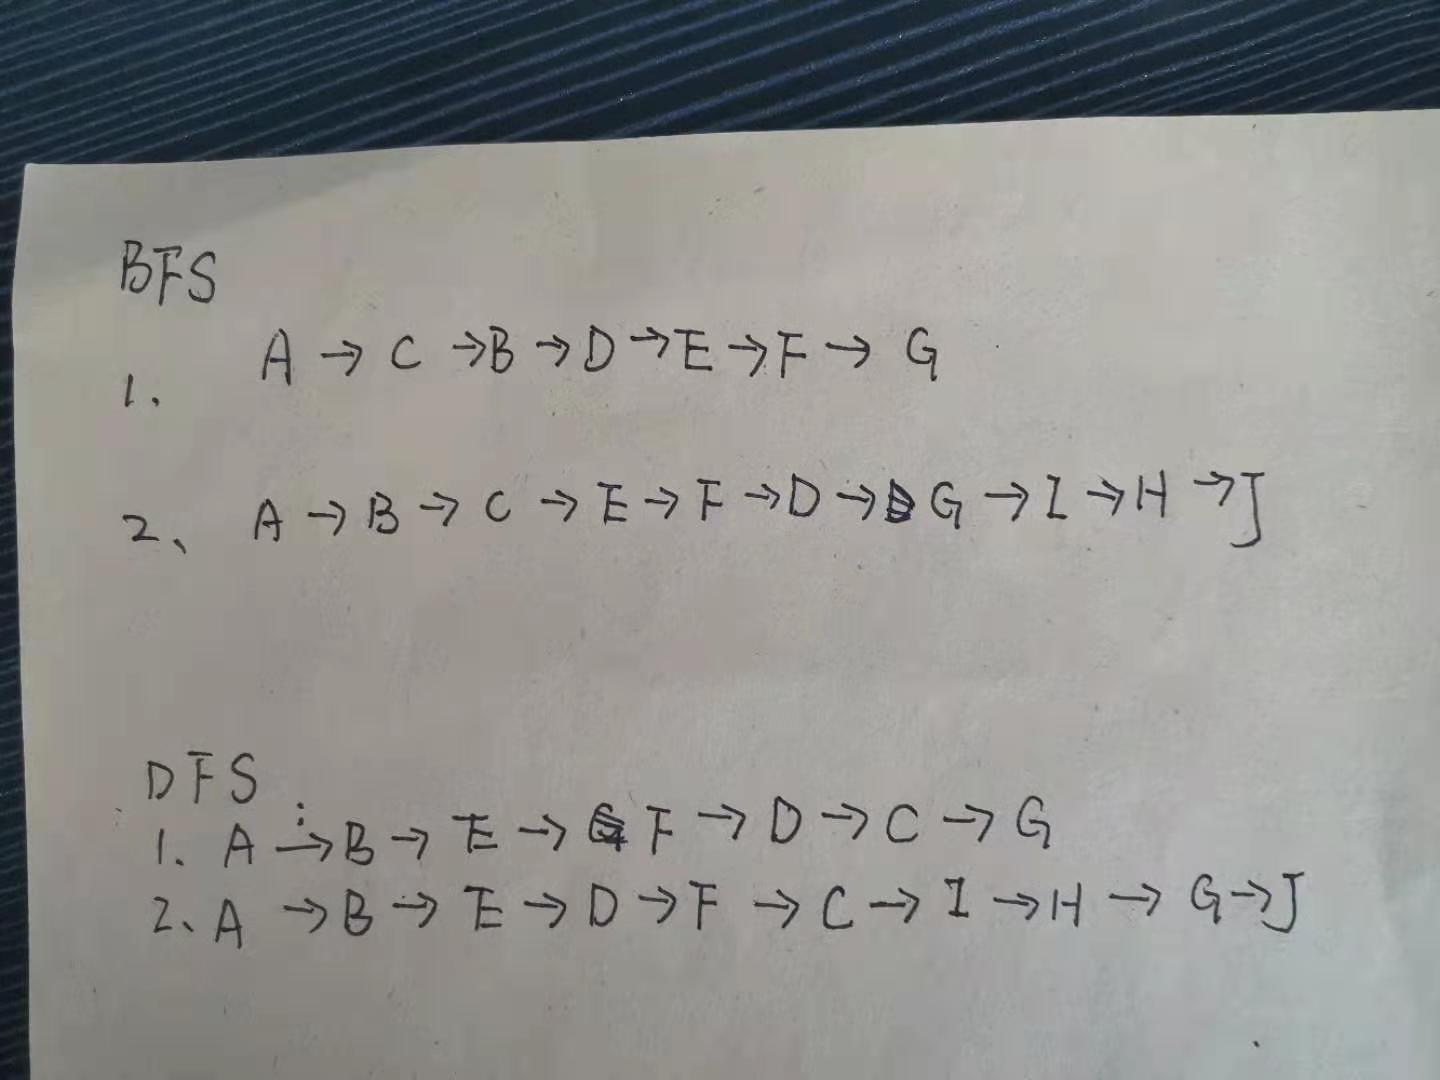 BFS
1. A → C → B → D → E → F → G
2、 A → B → C → E → F → D → G → I → H → J
DFS
1. A → B → E → F → D → C → G
2、A → B → E → D → F → C → I → H → G → J